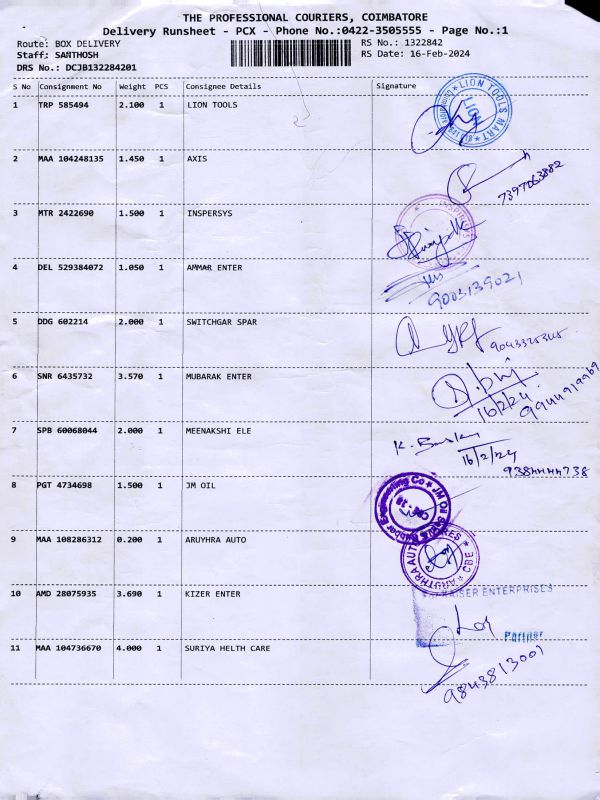 THE PROFESSIONAL COURIERS, COIMBATORE
Delivery Runsheet - PCX - Phone No.:0422-3505555 - Page No.:1
Route: BOX DELIVERY RS No.: 1322842
Staff: SANTHOSH RS Date: 16-Feb-2024
DRS No.: DCJB132284201
S No Consignment No Weight PCS Consignee Details Signature
1 TRP 585494 2.100 1 LION TOOLS
LION TOOLS MART
LION
2 MAA 104248135 1.450 1 AXIS
7397063882
3 MTR 2422690 1.500 1 INSPERSYS
4 DEL 529384072 1.050 1 AMMAR ENTER
9003139021
5 DDG 602214 2.000 1 SWITCHGAR SPAR
6 SNR 6435732 3.570 1 MUBARAK ENTER
16/2/24
9944919969
7 SPB 60068044 2.000 1 MEENAKSHI ELE
16/2/24
9384444738
8 PGT 4734698 1.500 1 JM OIL
JM Oil Seals & Rubber Engineering Co
CBE - 18
9 MAA 108286312 0.200 1 ARUYHRA AUTO
CBE
10 AMD 28075935 3.690 1 KIZER ENTER
ENTERPRISES
Partner
11 MAA 104736670 4.000 1 SURIYA HELTH CARE
9843813001